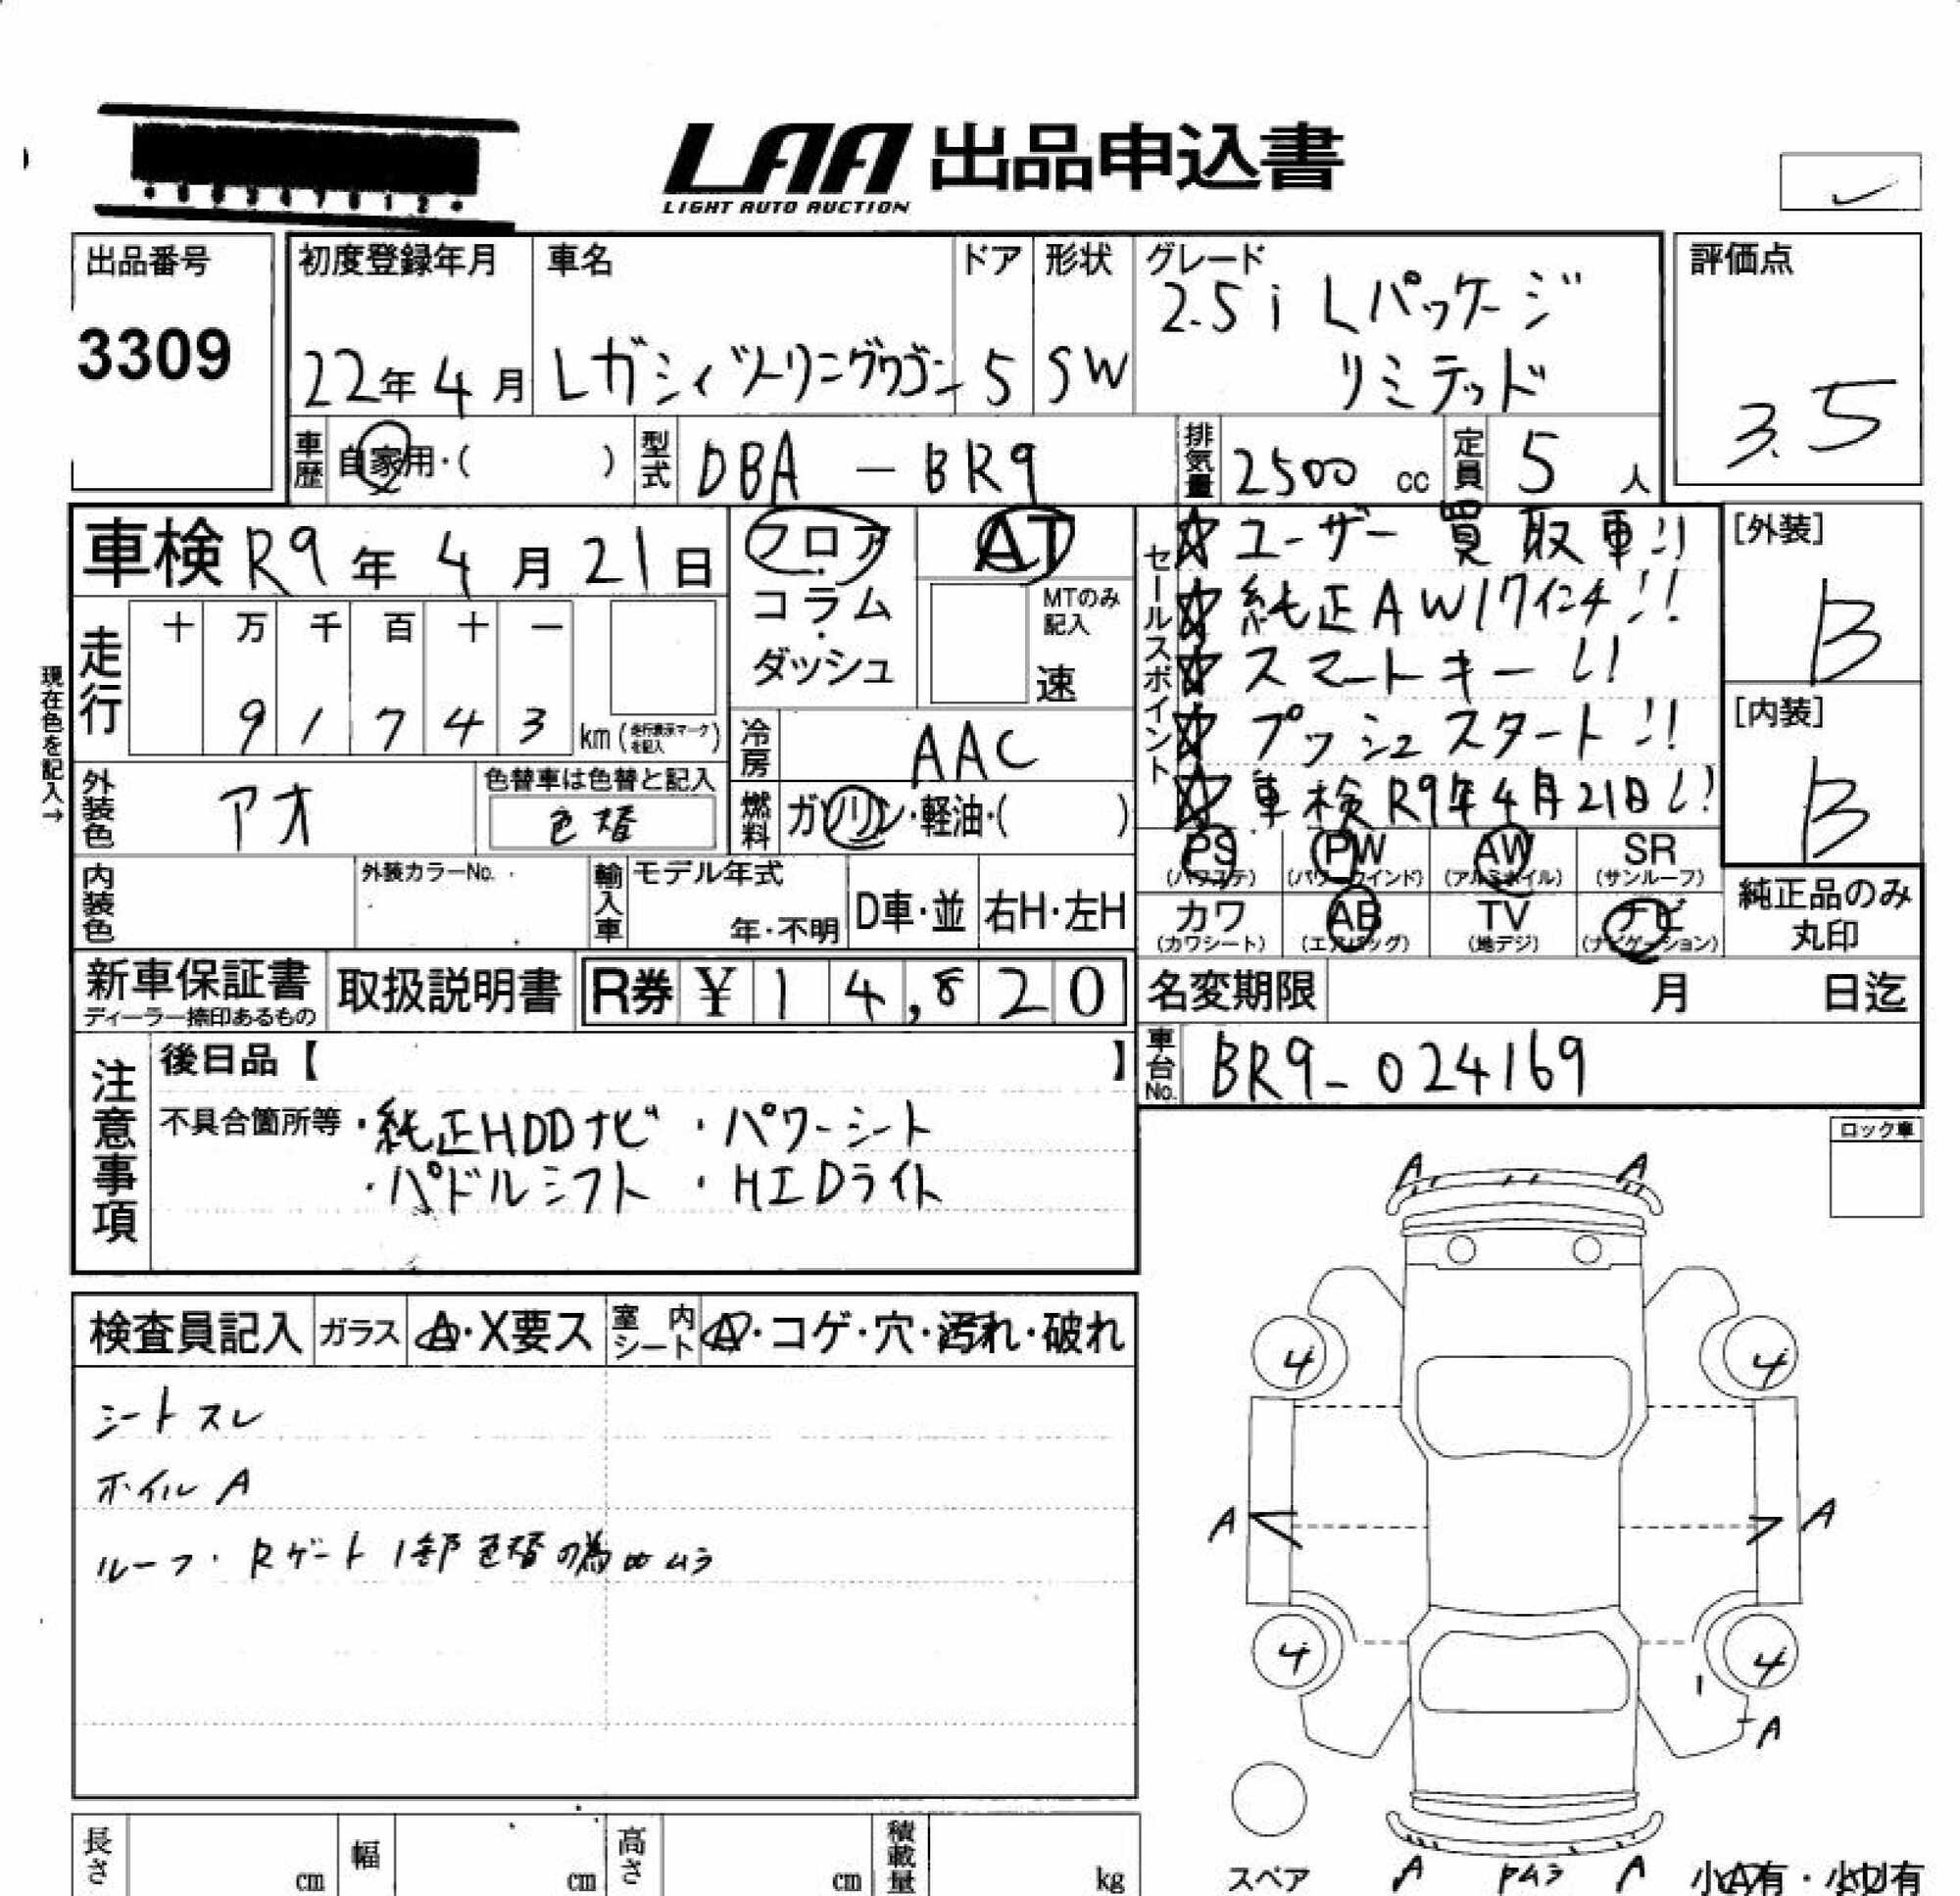 LAA 出品申込書
LIGHT AUTO AUCTION
出品番号
3309
初度登録年月 車名 ドア 形状 グレード
22年 4月 Lガシィツーリングワゴン 5 SW 2.5i Lパッケージ
リミテッド
評価点
3.5
車歴 自家用・( ) 型式 DBA - BR9 排気量 2500 cc 定員 5 人
車検 R9年 4月 21日
フロア
コラム
ダッシュ
AT
MTのみ
記入
速
セールスポイント
☆ ユーザー買取車!!
☆ 純正AW17インチ!!
☆ スマートキー!!
☆ プッシュスタート!!
☆ 車検R9年4月21日!!
[外装]
B
[内装]
B
現在色を記入→
走行
十 万 千 百 十 一
9 1 7 4 3 km (走行表示マークを記入)
冷房 AAC
外装色 アオ
色替車は色替と記入
色替
燃料 ガソリン・軽油・( )
PS PW AW SR
(パワステ) (パワーウインド) (アルミホイル) (サンルーフ)
カワ AB TV ナビ
(カワシート) (エアバッグ) (地デジ) (ナビゲーション)
純正品のみ
丸印
内装色 外装カラーNo. 輸入車 モデル年式
年・不明 D車・並 右H・左H
新車保証書 取扱説明書 R券 ¥ 1 4,8 2 0
ディーラー捺印あるもの
名変期限 月 日迄
車台No. BR9-024169
注意事項
後日品【 】
不具合箇所等 ・純正HDDナビ ・パワーシート
・パドルシフト ・HIDライト
ロック車
検査員記入 ガラス A・X要ス 室内シート A・コゲ・穴・汚れ・破れ
シートスレ
ホイルA
ルーフ・Rゲート1部色替の為
A A
4 4
A A
4 4
A
スペア A A 小A有・小U有
長さ cm 幅 cm 高さ cm 積載量 kg